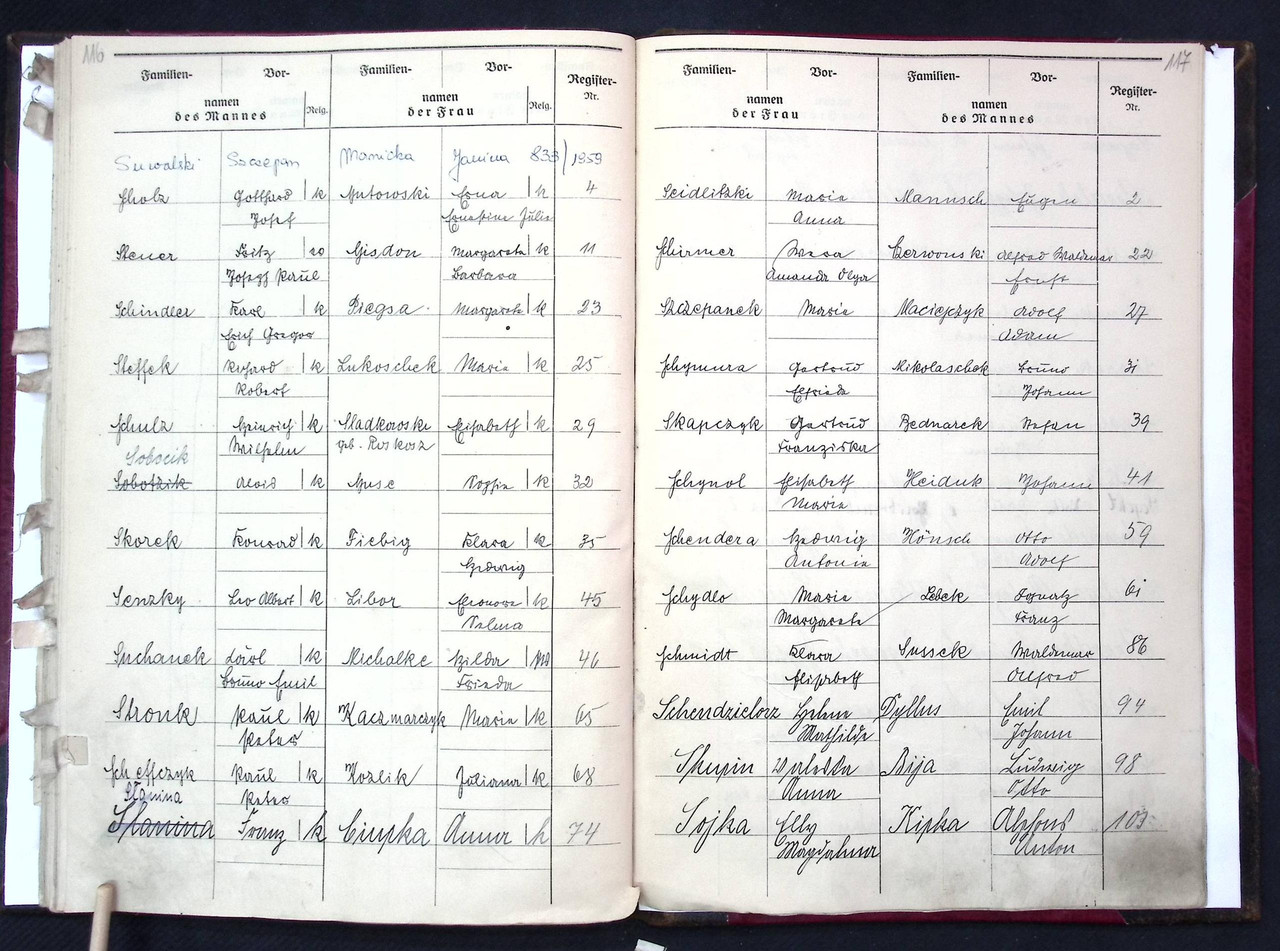 116
Familien- Vor- Familien- Vor- Register-
namen namen Nr.
des Mannes Relg. der Frau Relg.
Suwalski Szczepan Manicka Janina 833/1959
Scholz Gotthard k Gutowski Erna k 4
Josef Ernestine Julie
Stener Fritz Gisdon Margareta k 11
Joseph Paul Barbara
Schindler Karl k Piegsa Margarete k 23
Erich Gregor
Steffek Richard k Lukoschek Maria k 25
Robert
Schulz Heinrich k Sladkowski Elisabeth k 29
Wilhelm geb. Roskosz
Sobocik
Sobotzik Alois k Sophie k 32
Skorek Konrad k Fiebig Klara k 35
Hedwig
Senzky Leo Albert k Libor Eleonore k 45
Selma
Suchanek Karl k Michalke Hilda 46
Bruno Emil Frieda
Stronk Paul k Kaczmarczyk Maria k 65
Peter
Schefczyk Paul k Kozlik Juliana k 68
Stanina Peter
Stanina Franz k Ciupka Anna k 74
117
Familien- Vor- Familien- Vor- Register-
namen namen Nr.
der Frau des Mannes
Seidlitzki Maria Mannsch Eugen 2
Anna
Schirmer Wera Czerwonski Alfred Waldemar 22
Amanda Olga Ernst
Szczepanek Marie Maciejczyk Adolf 27
Adam
Schymura Gertrud Mikolaschek Bruno 31
Elfriede Johann
Skapczyk Gertrud Bednarek Stefan 39
Franziska
Schynol Elisabeth Heiduk Johann 41
Maria
Schendera Hedwig Hönsch Otto 59
Antonie Adolf
Schydlo Marie Lebek Ignatz 61
Margarete Franz
Schmidt Klara Sussek Waldemar 86
Elisabeth Alfred
Schendzielorz Helene Dyllus Emil 94
Mathilde Johann
Skupin Valeska Bija Ludwig 98
Anna Otto
Sojka Elly Kipka Alfons 103
Magdalena Anton